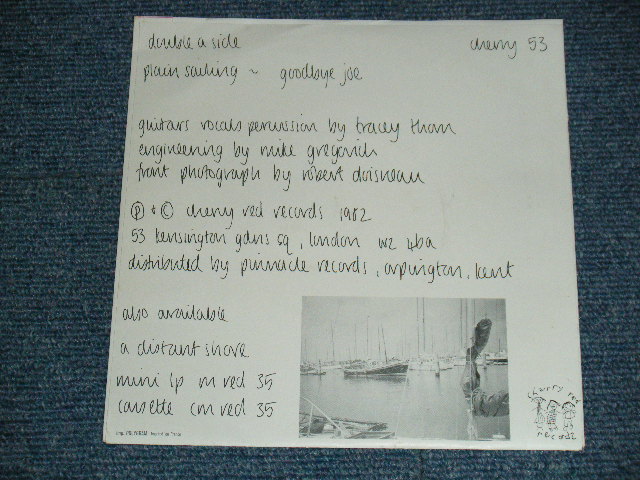 double a side cherry 53
plain sailing ~ goodbye joe
guitars vocals percussion by tracey thorn
engineering by mike gregovich
front photograph by robert doisneau
Ⓟ + © cherry red records 1982
53 kensington gdns sq, london w2 4ba
distributed by pinnacle records, orpington, kent
also available
a distant shore
mini lp m red 35
cassette cm red 35
cherry red
records